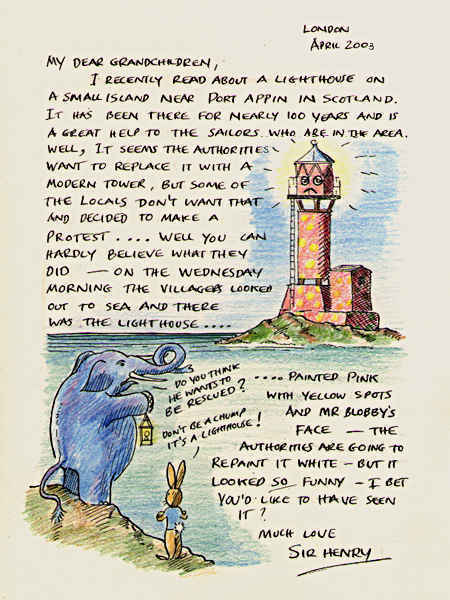 LONDON
APRIL 2003
MY DEAR GRANDCHILDREN,
I RECENTLY READ ABOUT A LIGHTHOUSE ON
A SMALL ISLAND NEAR PORT APPIN IN SCOTLAND.
IT HAS BEEN THERE FOR NEARLY 100 YEARS AND IS
A GREAT HELP TO THE SAILORS WHO ARE IN THE AREA.
WELL, IT SEEMS THE AUTHORITIES
WANT TO REPLACE IT WITH A
MODERN TOWER, BUT SOME OF
THE LOCALS DON'T WANT THAT
AND DECIDED TO MAKE A
PROTEST .... WELL YOU CAN
HARDLY BELIEVE WHAT THEY
DID — ON THE WEDNESDAY
MORNING THE VILLAGERS LOOKED
OUT TO SEA AND THERE
WAS THE LIGHTHOUSE ....
DO YOU THINK
HE WANTS TO
BE RESCUED?
DON'T BE A CHUMP
IT'S A LIGHTHOUSE!
.... PAINTED PINK
WITH YELLOW SPOTS
AND MR BLOBBY'S
FACE — THE
AUTHORITIES ARE GOING TO
REPAINT IT WHITE — BUT IT
LOOKED SO FUNNY — I BET
YOU'D LIKE TO HAVE SEEN
IT?
MUCH LOVE
SIR HENRY